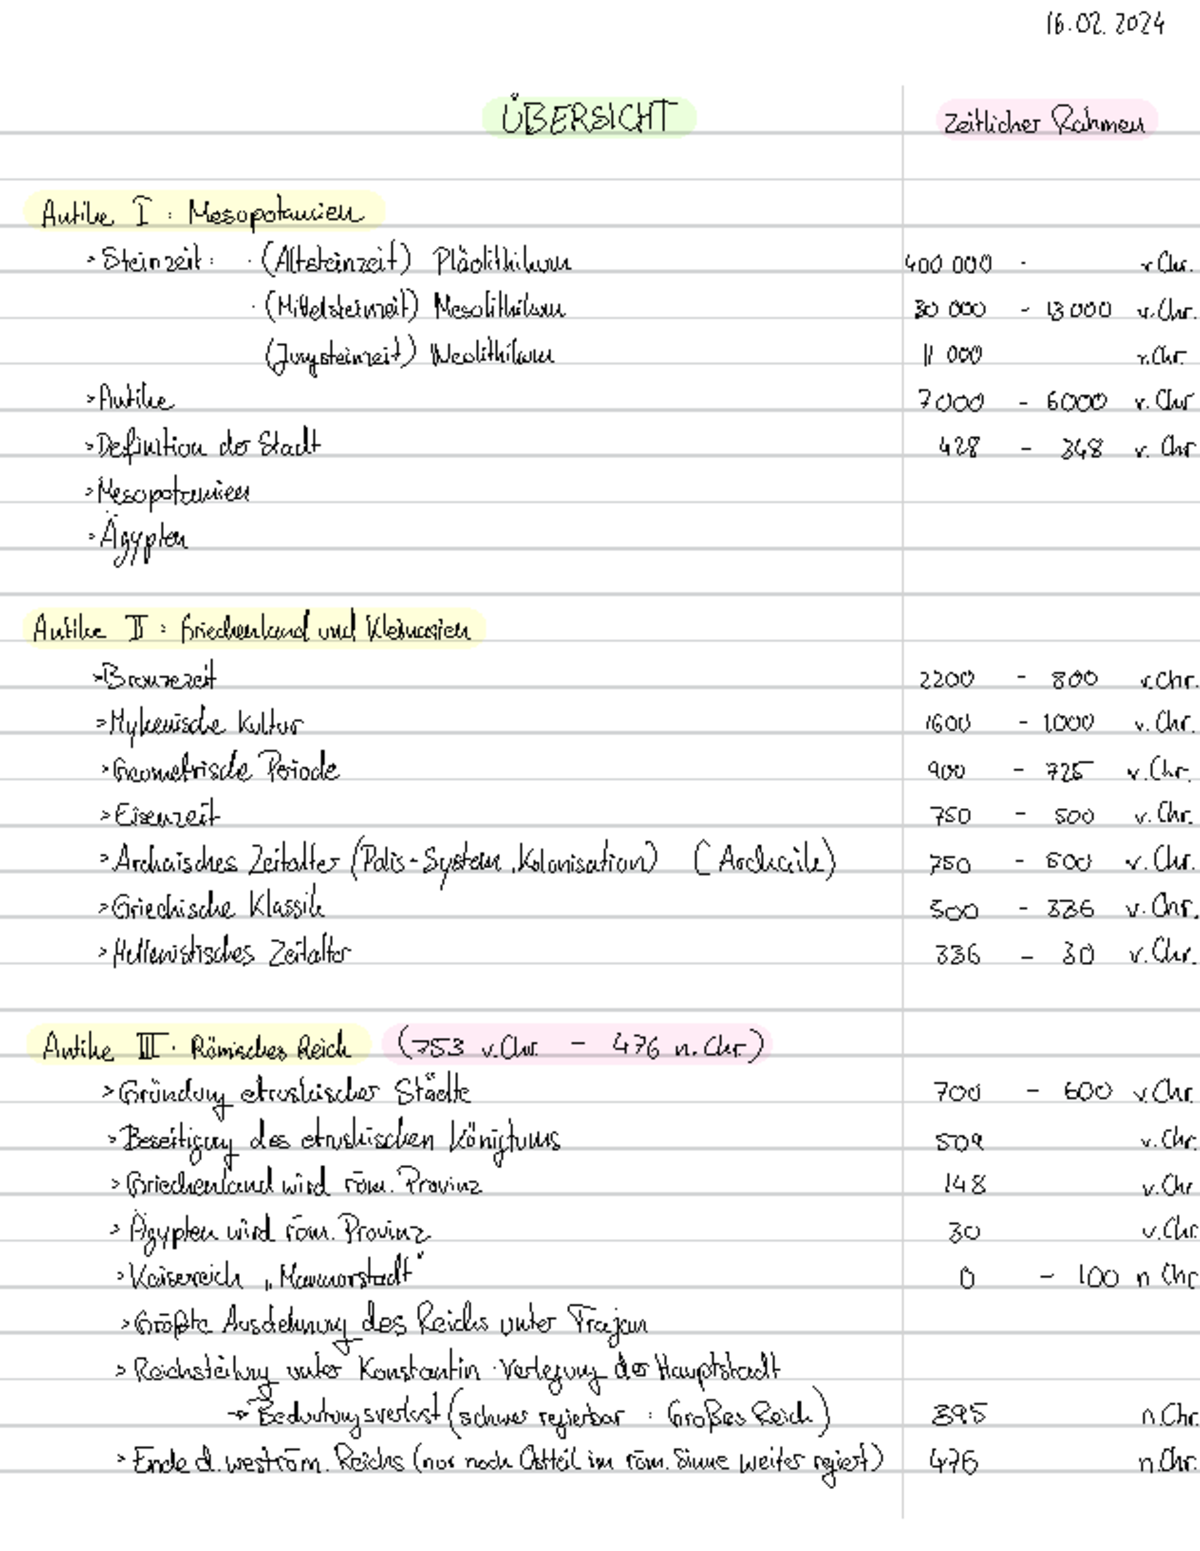 16.02.2024
ÜBERSICHT Zeitlicher Rahmen
Antike I : Mesopotamien
> Steinzeit: · (Altsteinzeit) Pläolithikum 400 000 - v.Chr.
· (Mittelsteinzeit) Mesolithikum 30 000 - 13 000 v.Chr.
(Jungsteinzeit) Neolithikum 11 000 v.Chr
> Antike 7000 - 6000 v. Chr
> Definition der Stadt 428 - 348 v. Chr
> Mesopotamien
> Ägypten
Antike II : Griechenland und Kleinasien
> Bronzezeit 2200 - 800 v.Chr.
> Mykenische Kultur 1600 - 1000 v.Chr.
> Geometrische Periode 900 - 725 v.Chr.
> Eisenzeit 750 - 500 v.Chr.
> Archaisches Zeitalter (Polis-System, Kolonisation) (Archaik) 750 - 500 v.Chr.
> Griechische Klassik 500 - 336 v.Chr.
> Hellenistisches Zeitalter 336 - 30 v.Chr.
Antike III · Römisches Reich (753 v.Chr. - 476 n.Chr.)
> Gründung etruskischer Städte 700 - 600 v.Chr.
> Beseitigung des etruskischen Königtums 509 v.Chr.
> Griechenland wird röm. Provinz 148 v.Chr
> Ägypten wird röm. Provinz 30 v.Chr.
> Kaiserreich „Marmorstadt" 0 - 100 n Chr
> Größte Ausdehnung des Reichs unter Trajan
> Reichsteilung unter Konstantin · Verlegung der Hauptstadt
→ Bedeutungsverlust (schwer regierbar : Großes Reich) 395 n.Chr.
> Ende d. weström. Reichs (nur noch Ostteil im röm. Sinne weiter regiert) 476 n.Chr.